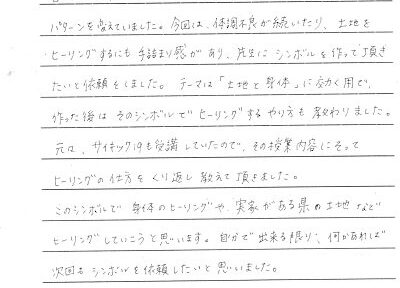 パターンを変えていました。今回は、体調不良が続いたり、土地を
ヒーリングするにも手詰まり感があり、先生にシンボルを作って頂き
たいと依頼をしました。テーマは「土地と身体」に効く用で、
作った後はそのシンボルでヒーリングするやり方も教わりました。
元々、サイキック19も受講していたので、その授業内容にそって
ヒーリングの仕方をくり返し教えて頂きました。
このシンボルで身体のヒーリングや、実家がある県の土地など
ヒーリングしていこうと思います。自分で出来る限り、何かあれば
次回もシンボルを依頼したいと思いました。